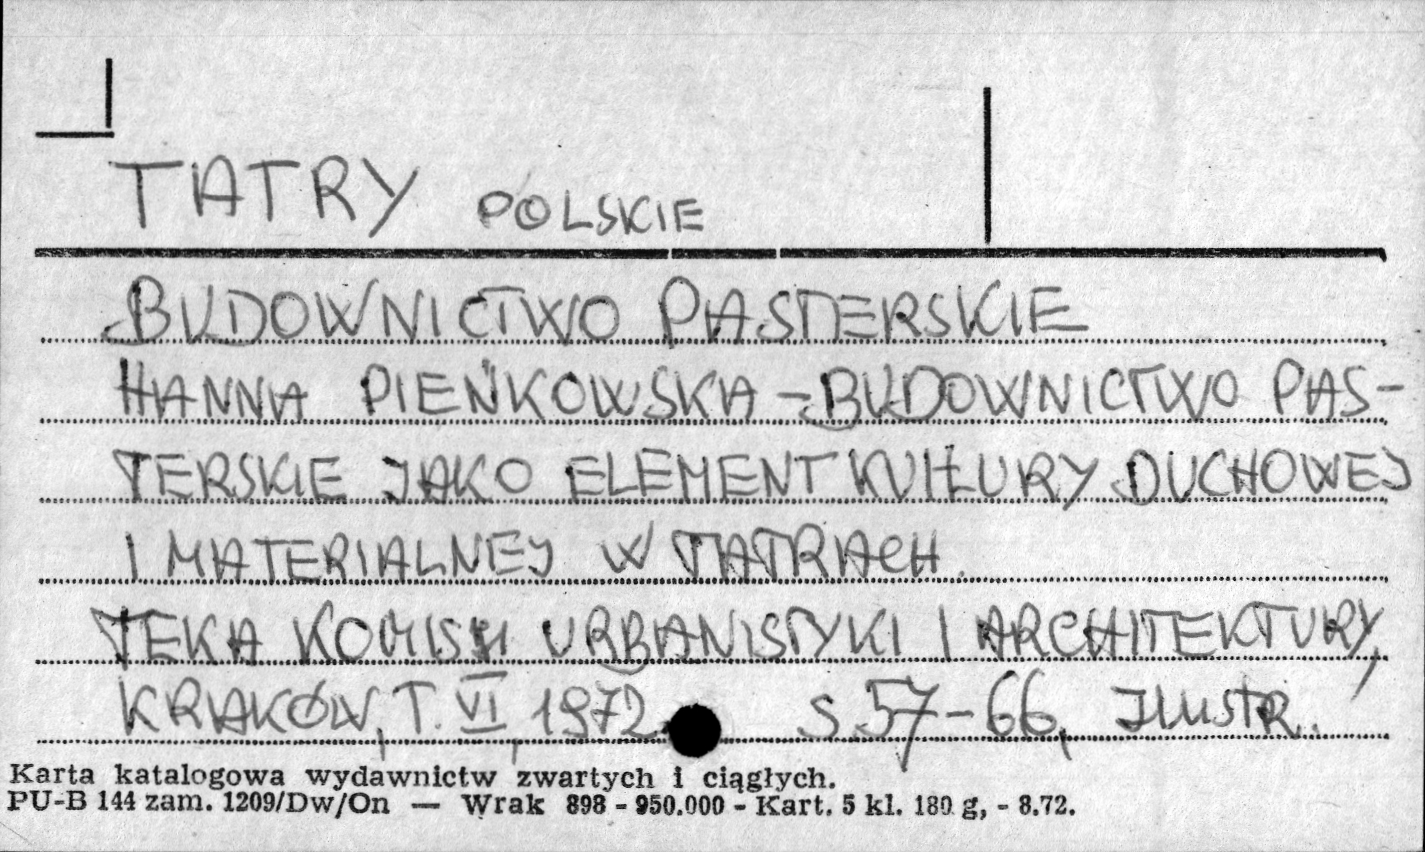 TATRY POLSKIE
BUDOWNICTWO PASTERSKIE
HANNA PIEŃKOWSKA - BUDOWNICTWO PAS-
TERSKIE JAKO ELEMENT KULTURY DUCHOWEJ
I MATERIALNEJ W TATRACH.
TEKA KOMISJI URBANISTYKI I ARCHITEKTURY,
KRAKÓW, T. VI, 1972. S. 57-66, Ilustr.
Karta katalogowa wydawnictw zwartych i ciągłych.
PU-B 144 zam. 1209/Dw/On — Wrak 898 - 950.000 - Kart. 5 kl. 180 g, - 8.72.